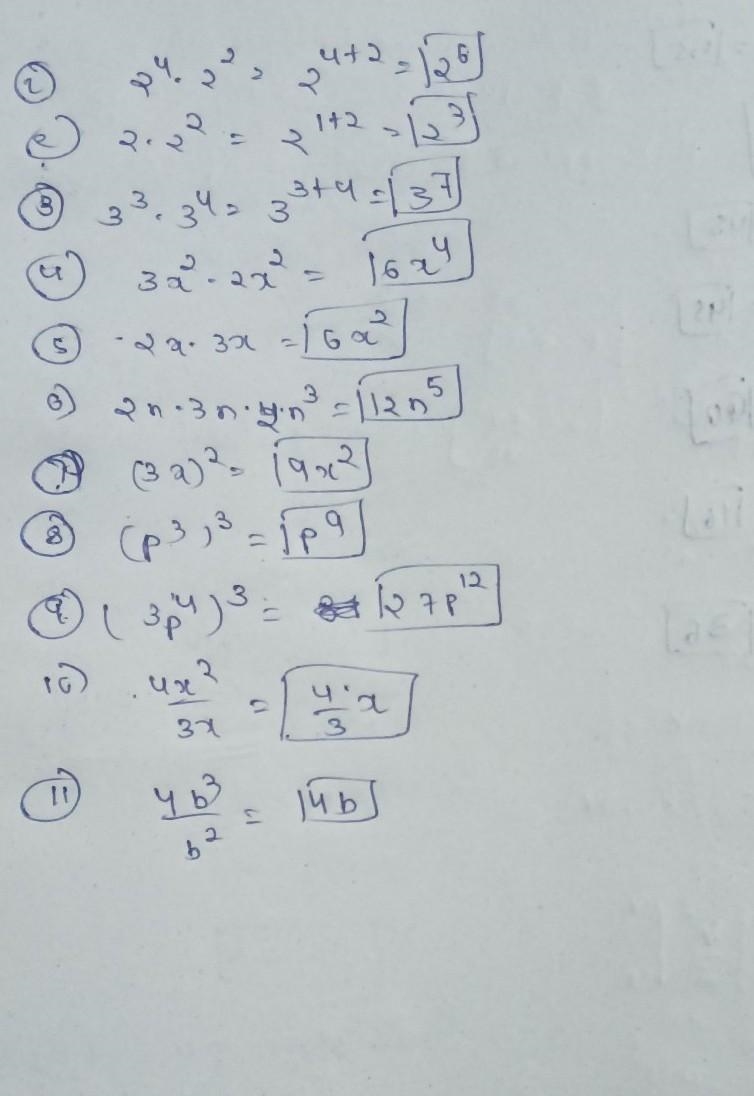 ① 2⁴ · 2² = 2⁴⁺² = 2⁶
② 2 · 2² = 2¹⁺² = 2³
③ 3³ · 3⁴ = 3³⁺⁴ = 3⁷
④ 3x² · 2x² = 6x⁴
⑤ · 2x · 3x = 6x²
6) 2n · 3n · 2 · n³ = 12n⁵
⑦ (3x)² = 9x²
⑧ (p³)³ = p⁹
⑨ (3p⁴)³ = 27p¹²
10) 4x²/3x = 4/3 · x
⑪ 4b³/b² = 4b